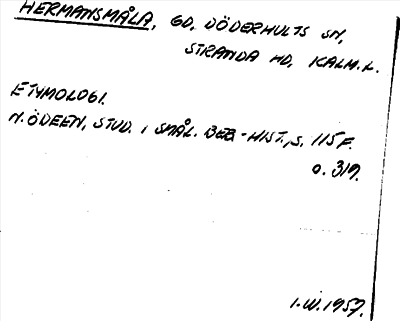 HERMANSMÅLA, GD, DÖDERHULTS SN,
STRANDA HD, KALM. L.
ETYMOLOGI.
N. ÖDEEN, STUD. I SMÅL. BEB-HIST., S. 115 F.
O. 319.
1.III.1957.